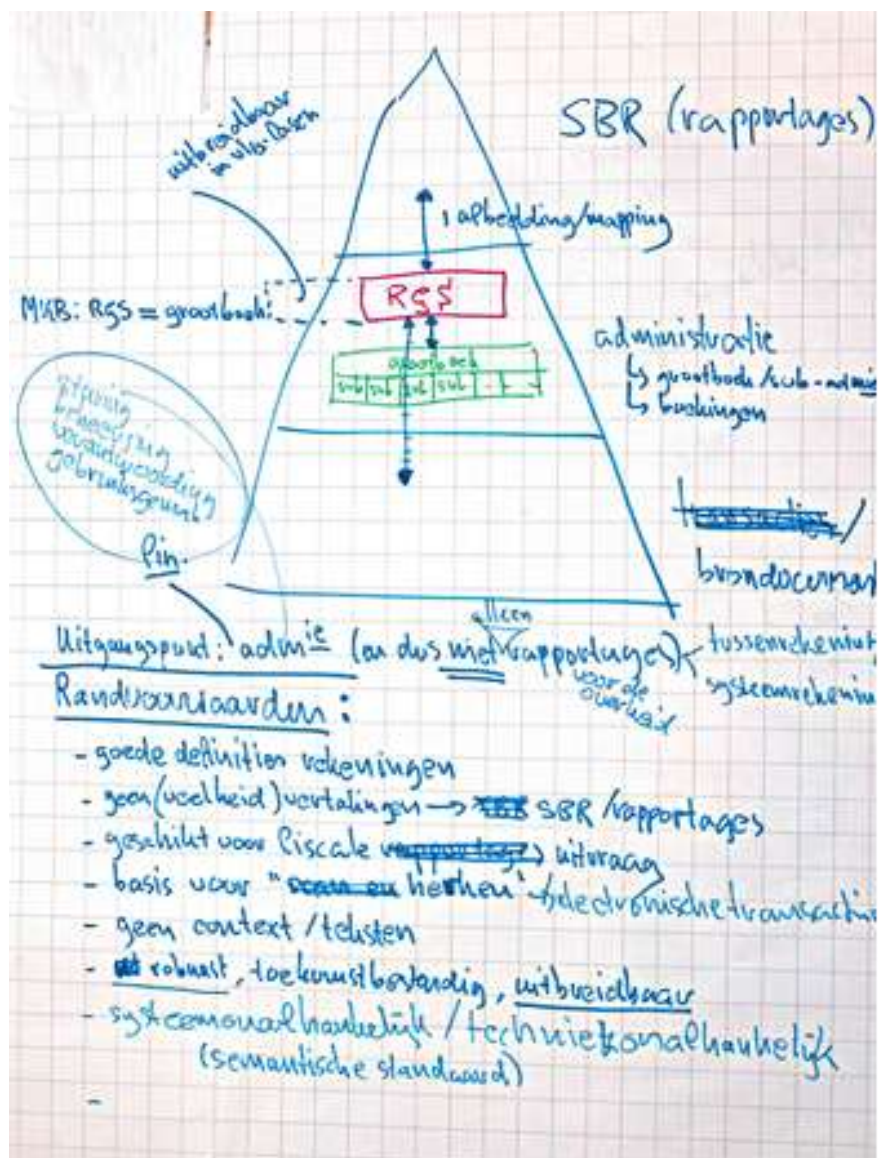 SBR (rapportages)
uitbreidbaar
in v.o. lagen
1 afbeelding/mapping
RGS
MKB: RGS = grootboek!
grootboek
sub sub sub sub - - -
administratie
↳ grootboek/sub-admi
↳ boekingen
sturing
beheersing
verantwoording
fin.
transacties /
brondocument
alleen
Uitgangspunt: admie (en dus niet rapportages)
voor de
overheid
tussenrekening
systeemrekenin
Randvoorwaarden:
- goede definition rekeningen
- geen (veelheid) vertalingen → SBR SBR /rapportages
- geschikt voor fiscale rapportage) uitvraag
- basis voor "scan en herken" → electronische transactie
- geen context / teksten
- robuust, toekomstbestendig, uitbreidbaar
- systeemonafhankelijk / techniekonafhankelijk
(semantische standaard)
-